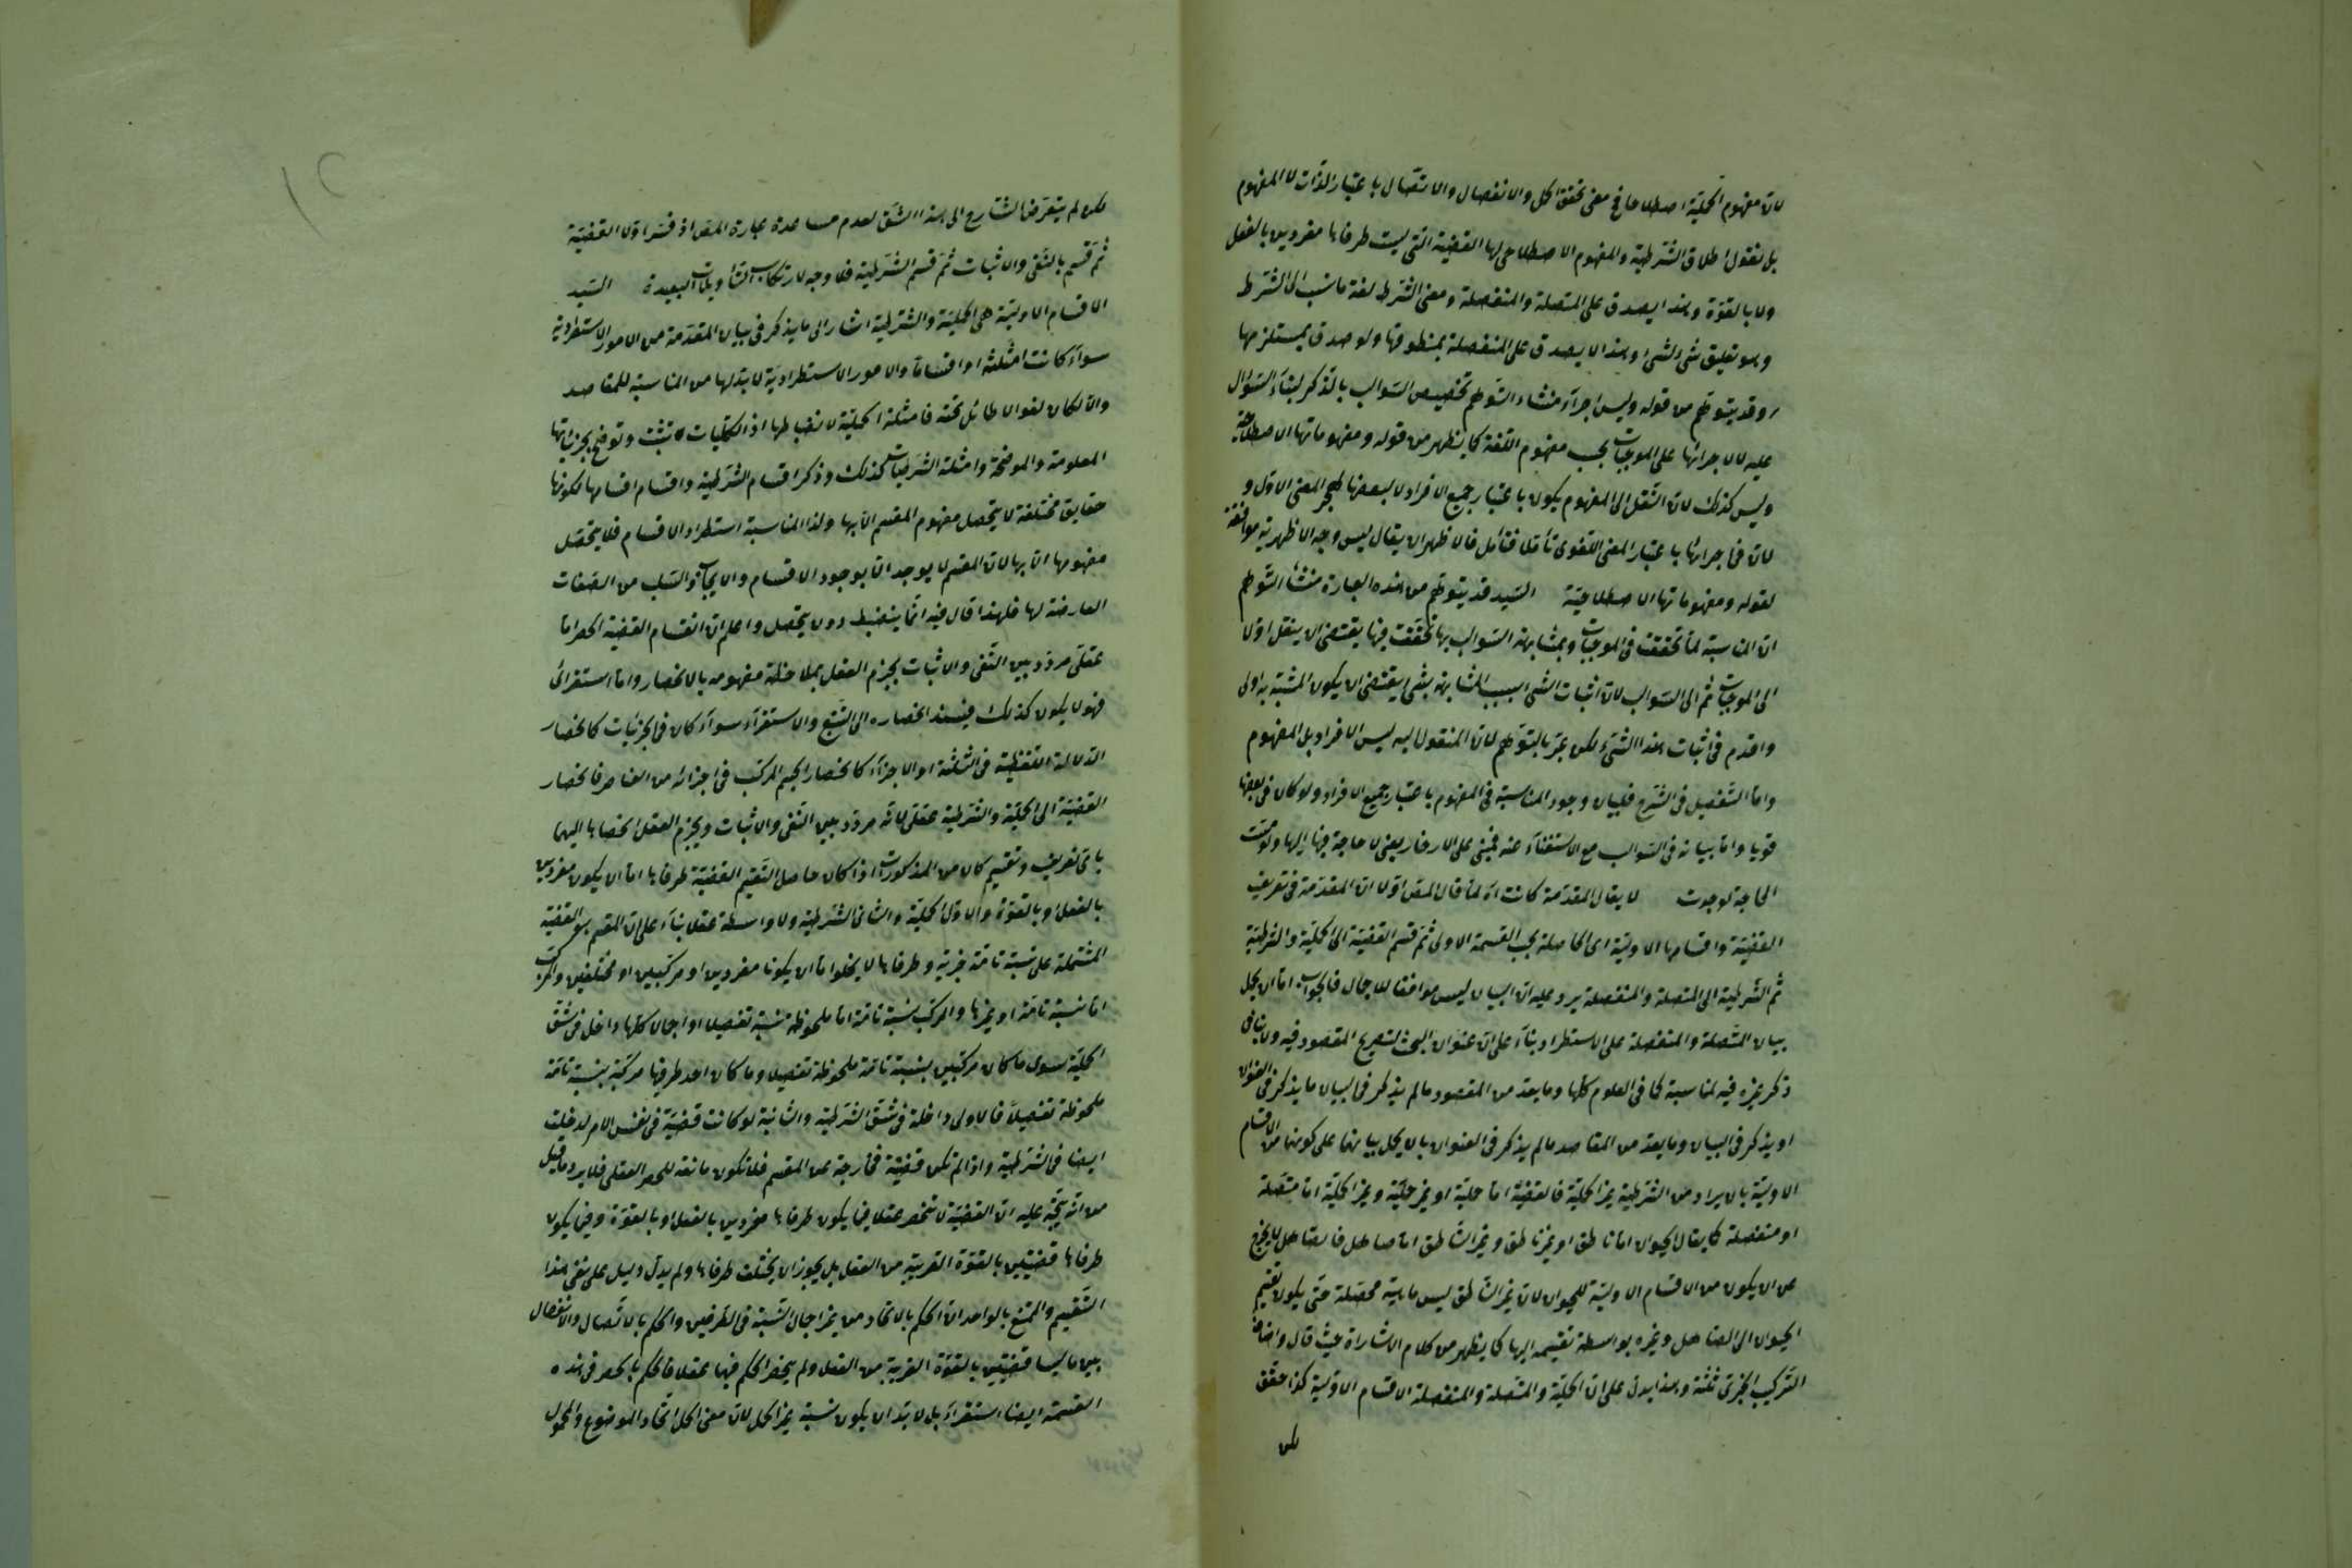 لان مفهوم الحملية اصطلاحا في معنى تحقق الحمل والانفصال والاتصال باعتبار الذات لا المفهوم
بل نقول اطلاق الشرطية والمفهوم الاصطلاحي لها القضية التي ليست طرفاها مفردين بالفعل
ولا بالقوة وهذا يصدق على المتصلة والمنفصلة ومعنى الشرط لغة ما نسب الى الشرط
وهو تعليق شيء لشيء وهذا لا يصدق على المنفصلة بمنطوقها ولو صدق بمستلزمها
وقد يتوهم من قوله وليس اجراء منشاء التوهم تخصيص السوالب بالذكر لبناء السؤال
عليه لان اجرائها على الموجبات بحسب مفهوم اللغة كما يظهر من قوله ومفهوماتها الاصطلاحية
وليس كذلك لان النقل الى المفهوم يكون باعتبار جميع الافراد لا بعضها المعنى الاول و
لان في اجرائها باعتبار المعنى اللغوي تأملا فتأمل فالاظهر ان يقال ليس وجه الاظهرية موافقة
لقوله ومفهوماتها الاصطلاحية السيد قد يتوهم من هذه العبارة منشأ التوهم
ان المناسبة لما تحققت في الموجبات وبمشابهة السوالب بها تحققت فيها يقتضي ان ينقل اولا
الى الموجبات ثم الى السوالب لان اثبات الشيء بسبب المشابهة بشيء يقتضي ان يكون المشبه به اولى
واقدم في اثبات هذا الشيء لكن عبر بالتوهم لان المنقول اليه ليس الافراد بل المفهوم
واما التفصيل في الشرح فلبيان وجود المناسبة في المفهوم باعتبار جميع الافراد ولو كان في بعضها
قويا واما بيانه في السوالب مع الاستغناء عنه فمبني على الارخاء يعني لا حاجة فيها اليها ولو مست
الحاجة لوجدت لا يقال المقدمة كانت اه لما قال المص اولا ان المقدمة في تعريف
القضية واقسامها الاولية اي الحاصلة بحسب القسمة الاولى ثم قسم القضية الى الحملية والشرطية
ثم الشرطية الى المتصلة والمنفصلة يرد عليه ان البيان ليس موافقا للاجمال فالجواب اما ان يحمل
بيان المتصلة والمنفصلة على الاستطراد بناء على ان عنوان البحث لتصريح المقصود فيه ولا ينافي
ذكر غيره فيه لمناسبة كما في العلوم كلها وما يعد من المقصود ما لم يذكر في البيان ما يذكر في العنوان
او يذكر في البيان وما يعد من المقاصد ما لم يذكر في العنوان بان يحمل بيانهما على كونهما من الاقسام
الاولية بان يراد من الشرطية غير الحملية فالقضية اما حملية او غير حملية وغير الحملية اما متصلة
او منفصلة كما يقال الحيوان اما ناطق او غير ناطق وغير الناطق اما صاهل فالصاهل لا يخرج
عن ان يكون من الاقسام الاولية للحيوان لان غير الناطق ليس ماهية محصلة حتى يكون تقسيم
الحيوان الى الصاهل وغيره بواسطة تقسيمه اليها كما يظهر من كلام الاشارات حيث قال واصناف
التركيب الخبري ثلثة وهذا يدل على ان الحملية والمتصلة والمنفصلة الاقسام الاولية كذا حقق
لكن
لكن لم يتعرض الشارح الى هذا الشق لعدم مساعدة عبارة المص اذ فسر اولا القضية
ثم قسم بالنفي والاثبات ثم قسم الشرطية فلا وجه لارتكاب التأويلات البعيدة السيد
الاقسام الاولية هي الحملية والشرطية اشار الى ما يذكر في بيان المقدمة من الامور الاستطرادية
سواء كانت امثلة او اقساما والامور الاستطرادية لا بد لها من المناسبة للمقاصد
والا لكان لغوا لا طائل تحته فامثلة الحملية لانضباطها اذ الكليات تثبت وتوضح بجزئياتها
المعلومة والموضحة وامثلة الشرطيات كذلك وذكر اقسام الشرطية واقسام اقسامها لكونها
حقايق مختلفة لا يتحصل مفهوم المقسم الا بها ولذا المناسبة استطراد الاقسام فلا يتحصل
مفهومها الا بها لان المقسم لا يوجد الا بوجود الاقسام والايجاب والسلب من الصفات
العارضة لها فلهذا قال فيه انما ينضبط دون يتحصل واعلم ان انقسام القضية الحصر اما
عقلي مردد بين النفي والاثبات يجزم العقل بملاحظة مفهومه بالانحصار واما استقرائي
فهو لا يكون كذلك فيستند انحصاره الى التتبع والاستقراء سواء كان في الجزئيات كانحصار
الدلالة اللفظية في الثلثة او الاجزاء كانحصار الجسم المركب في اجزائه من العناصر فانحصار
القضية الى الحملية والشرطية عقلي لانه مردد بين النفي والاثبات ويجزم العقل انحصارها اليهما
باي تعريف وتقسيم كان من المذكورات اذا كان حاصل التقسيم القضية طرفاها اما ان يكون مفردين
بالفعل او بالقوة والاول الحملية والثاني الشرطية ولا واسطة عقلا بناء على ان المقسم هو القضية
المشتملة على نسبة تامة خبرية وطرفاها لا يخلو اما ان يكونا مفردين او مركبين او مختلفين والمركب
اما نسبة تامة او غيرها والمركب بنسبة تامة اما ملحوظة نسبته تفصيلا او اجمالا كلها داخل في شق
الحملية سوى ما كان مركبين بنسبة تامة ملحوظة تفصيلا وما كان احد طرفيها مركبة بنسبة تامة
ملحوظة تفصيلا فالاولى داخلة في شق الشرطية والثانية لو كانت قضية في نفس الامر لدخلت
ايضا في الشرطية واذا لم تكن قضية فخارجة عن المقسم فلا تكون مانعة للحصر العقلي فلا يرد ما قيل
من انه يتجه عليه ان القضية لا تنحصر عقلا فيما يكون طرفاها مفردين بالفعل او بالقوة وفيما يكون
طرفاها قضيتين بالقوة القريبة من الفعل بل يجوز ان يختلف طرفاها ولم يدل دليل على نفي هذا
التقسيم والمتنع بالواحد ان الحكم بالاتحاد من غير اجمال النسبة في الطرفين والحكم بالاتصال والانفصال
بين ما ليسا قضيتين بالقوة القريبة من الفعل ولم ينحصر الحكم فيها عقلا فالحكم بالحصر في هذه
القسمة ايضا استقراء بل لا بد ان يكون نسبة غير الحمل لان معنى الحمل اتحاد الموضوع والمحمول